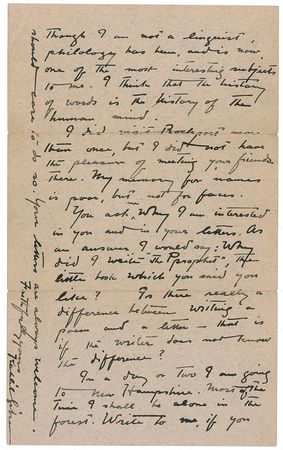 Though I am not a linguist,
philology has been, and is now,
one of the most interesting subjects
to me. I think that the history
of words is the history of the
human mind.
I did visit Rockport more
than once, but I did not have
the pleasure of meeting your friends
there. My memory for names
is poor, but not for faces.
You ask, Why I am interested
in you and in your letters. As
an answer I would say: Why
did I write "The Prophet", the
little book which you said you
like? Is there really a
difference between writing a
poem and a letter — that is
if the writer does not know
the difference?
In a day or two I am going
to New Hampshire. Most of the
time I shall be alone in the
forest. Write to me, if you
should care to do so. Your letters are always welcome.
Faithfully yours
Kahlil Gibran